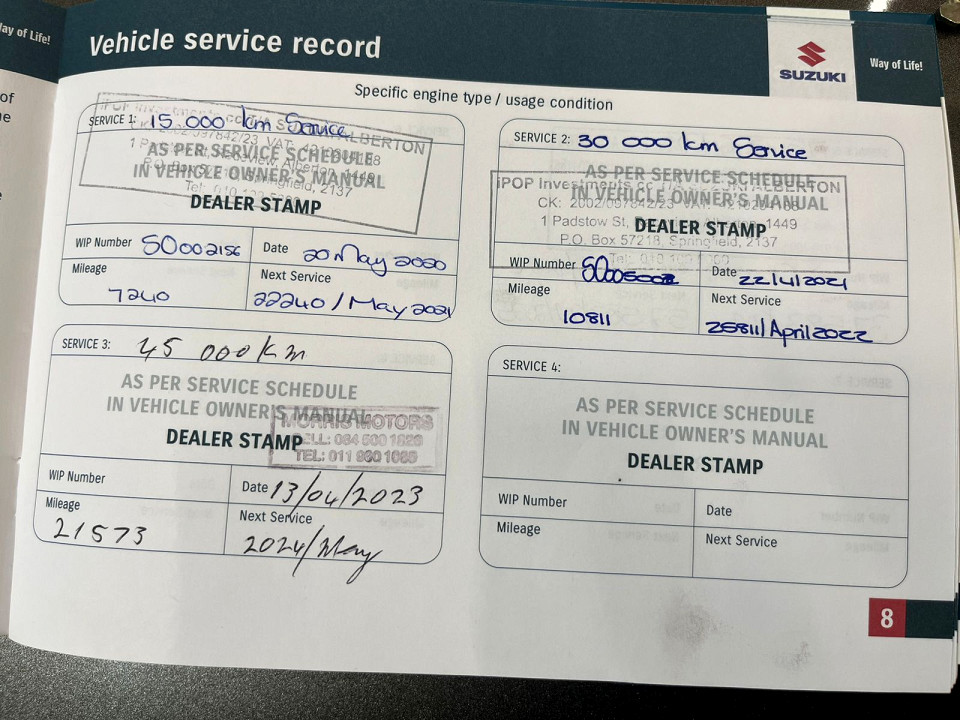 ay of Life!
of
e
Vehicle service record
SUZUKI
Way of Life!
Specific engine type / usage condition
SERVICE 1: 15 000 km Service
AS PER SERVICE SCHEDULE
IN VEHICLE OWNER'S MANUAL
DEALER STAMP
ALBERTON
P.O. Box Springfield, 2137
Tel: 010
WIP Number SO002156
Date 20 May 2020
Mileage
7240
Next Service
22240/May 2021
SERVICE 2: 30 000 km Service
AS PER SERVICE SCHEDULE
IN VEHICLE OWNER'S MANUAL
DEALER STAMP
iPOP Investments cc ALBERTON
CK: 2002/097842/23
1 Padstow St, Alberton, 1449
P.O. Box 57218, Springfield, 2137
Tel: 010
WIP Number
Date 22/4/2021
Mileage
10811
Next Service
25811/April 2022
SERVICE 3: 45 000 km
AS PER SERVICE SCHEDULE
IN VEHICLE OWNER'S MANUAL
DEALER STAMP
MORRIS MOTORS
CELL:
TEL: 011
WIP Number
Date 13/04/2023
Mileage
21573
Next Service
2024/May
SERVICE 4:
AS PER SERVICE SCHEDULE
IN VEHICLE OWNER'S MANUAL
DEALER STAMP
WIP Number
Date
Mileage
Next Service
8